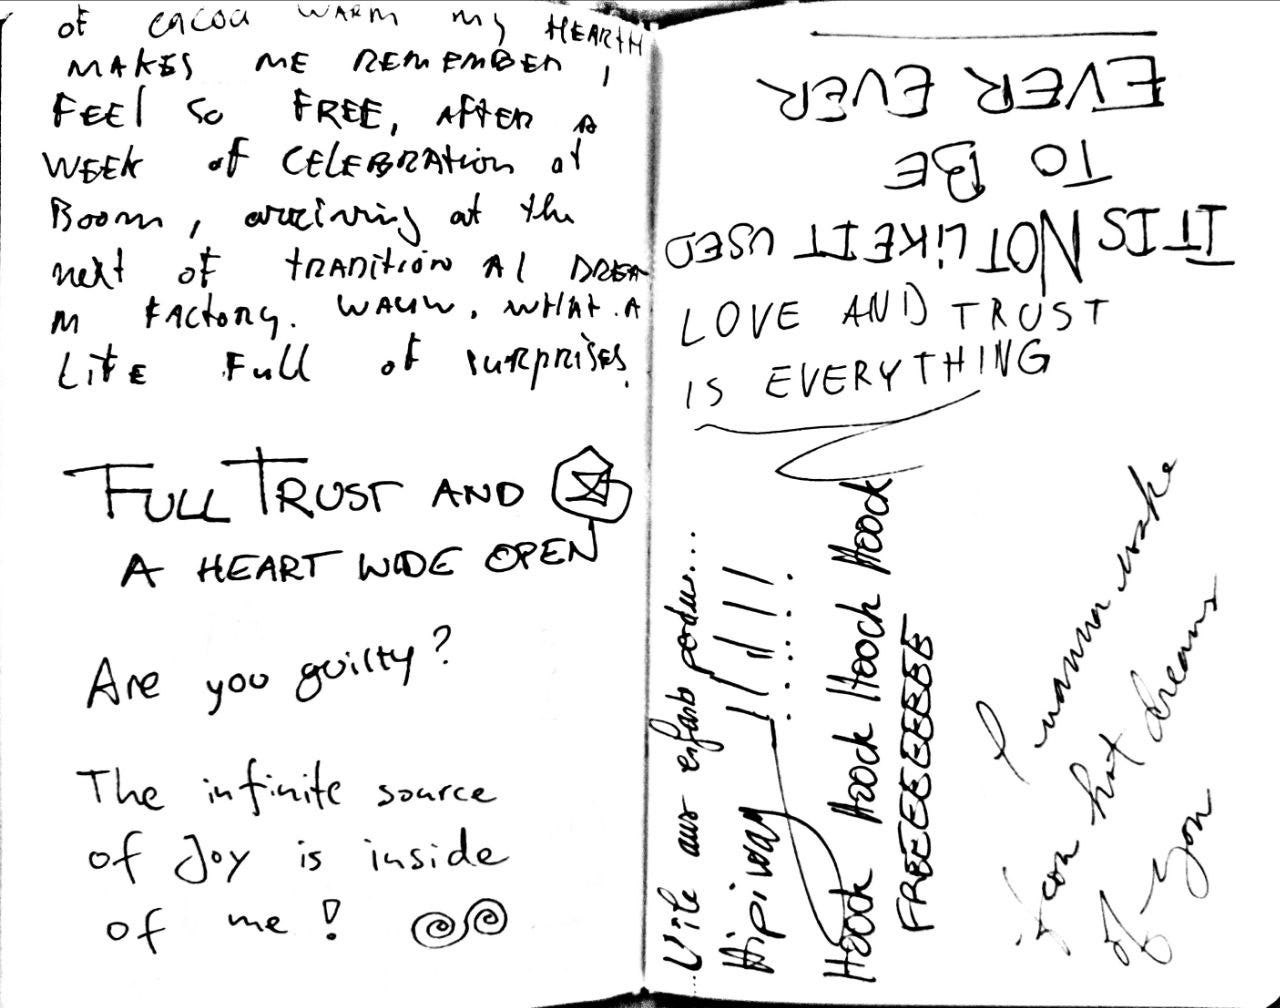 of cacoa WARM my HEARTH
MAKES ME REMEMBER,
FEEl So FREE, AFTER A
WEEK of CELEBRATion at
Boom, arriving at the
next of tRANitioN Al DREA
M FActory. WAUW. WHAt. A
LifE Full of surprises.
FULL TRUST AND
A HEART WIDE OPEN
Are you guilty?
The infinite source
of Joy is inside
of me!
EVER EVER
TO BE
IT IS NOT LiKE IT USED
LOVE AND TRUST
IS EVERYTHING
Vite aux enfants perdus...
Hipiway !!!!!
Hoock Hoock Hoock Hoock
FREEEEEEEE
I wanna make
hot dreams
of you